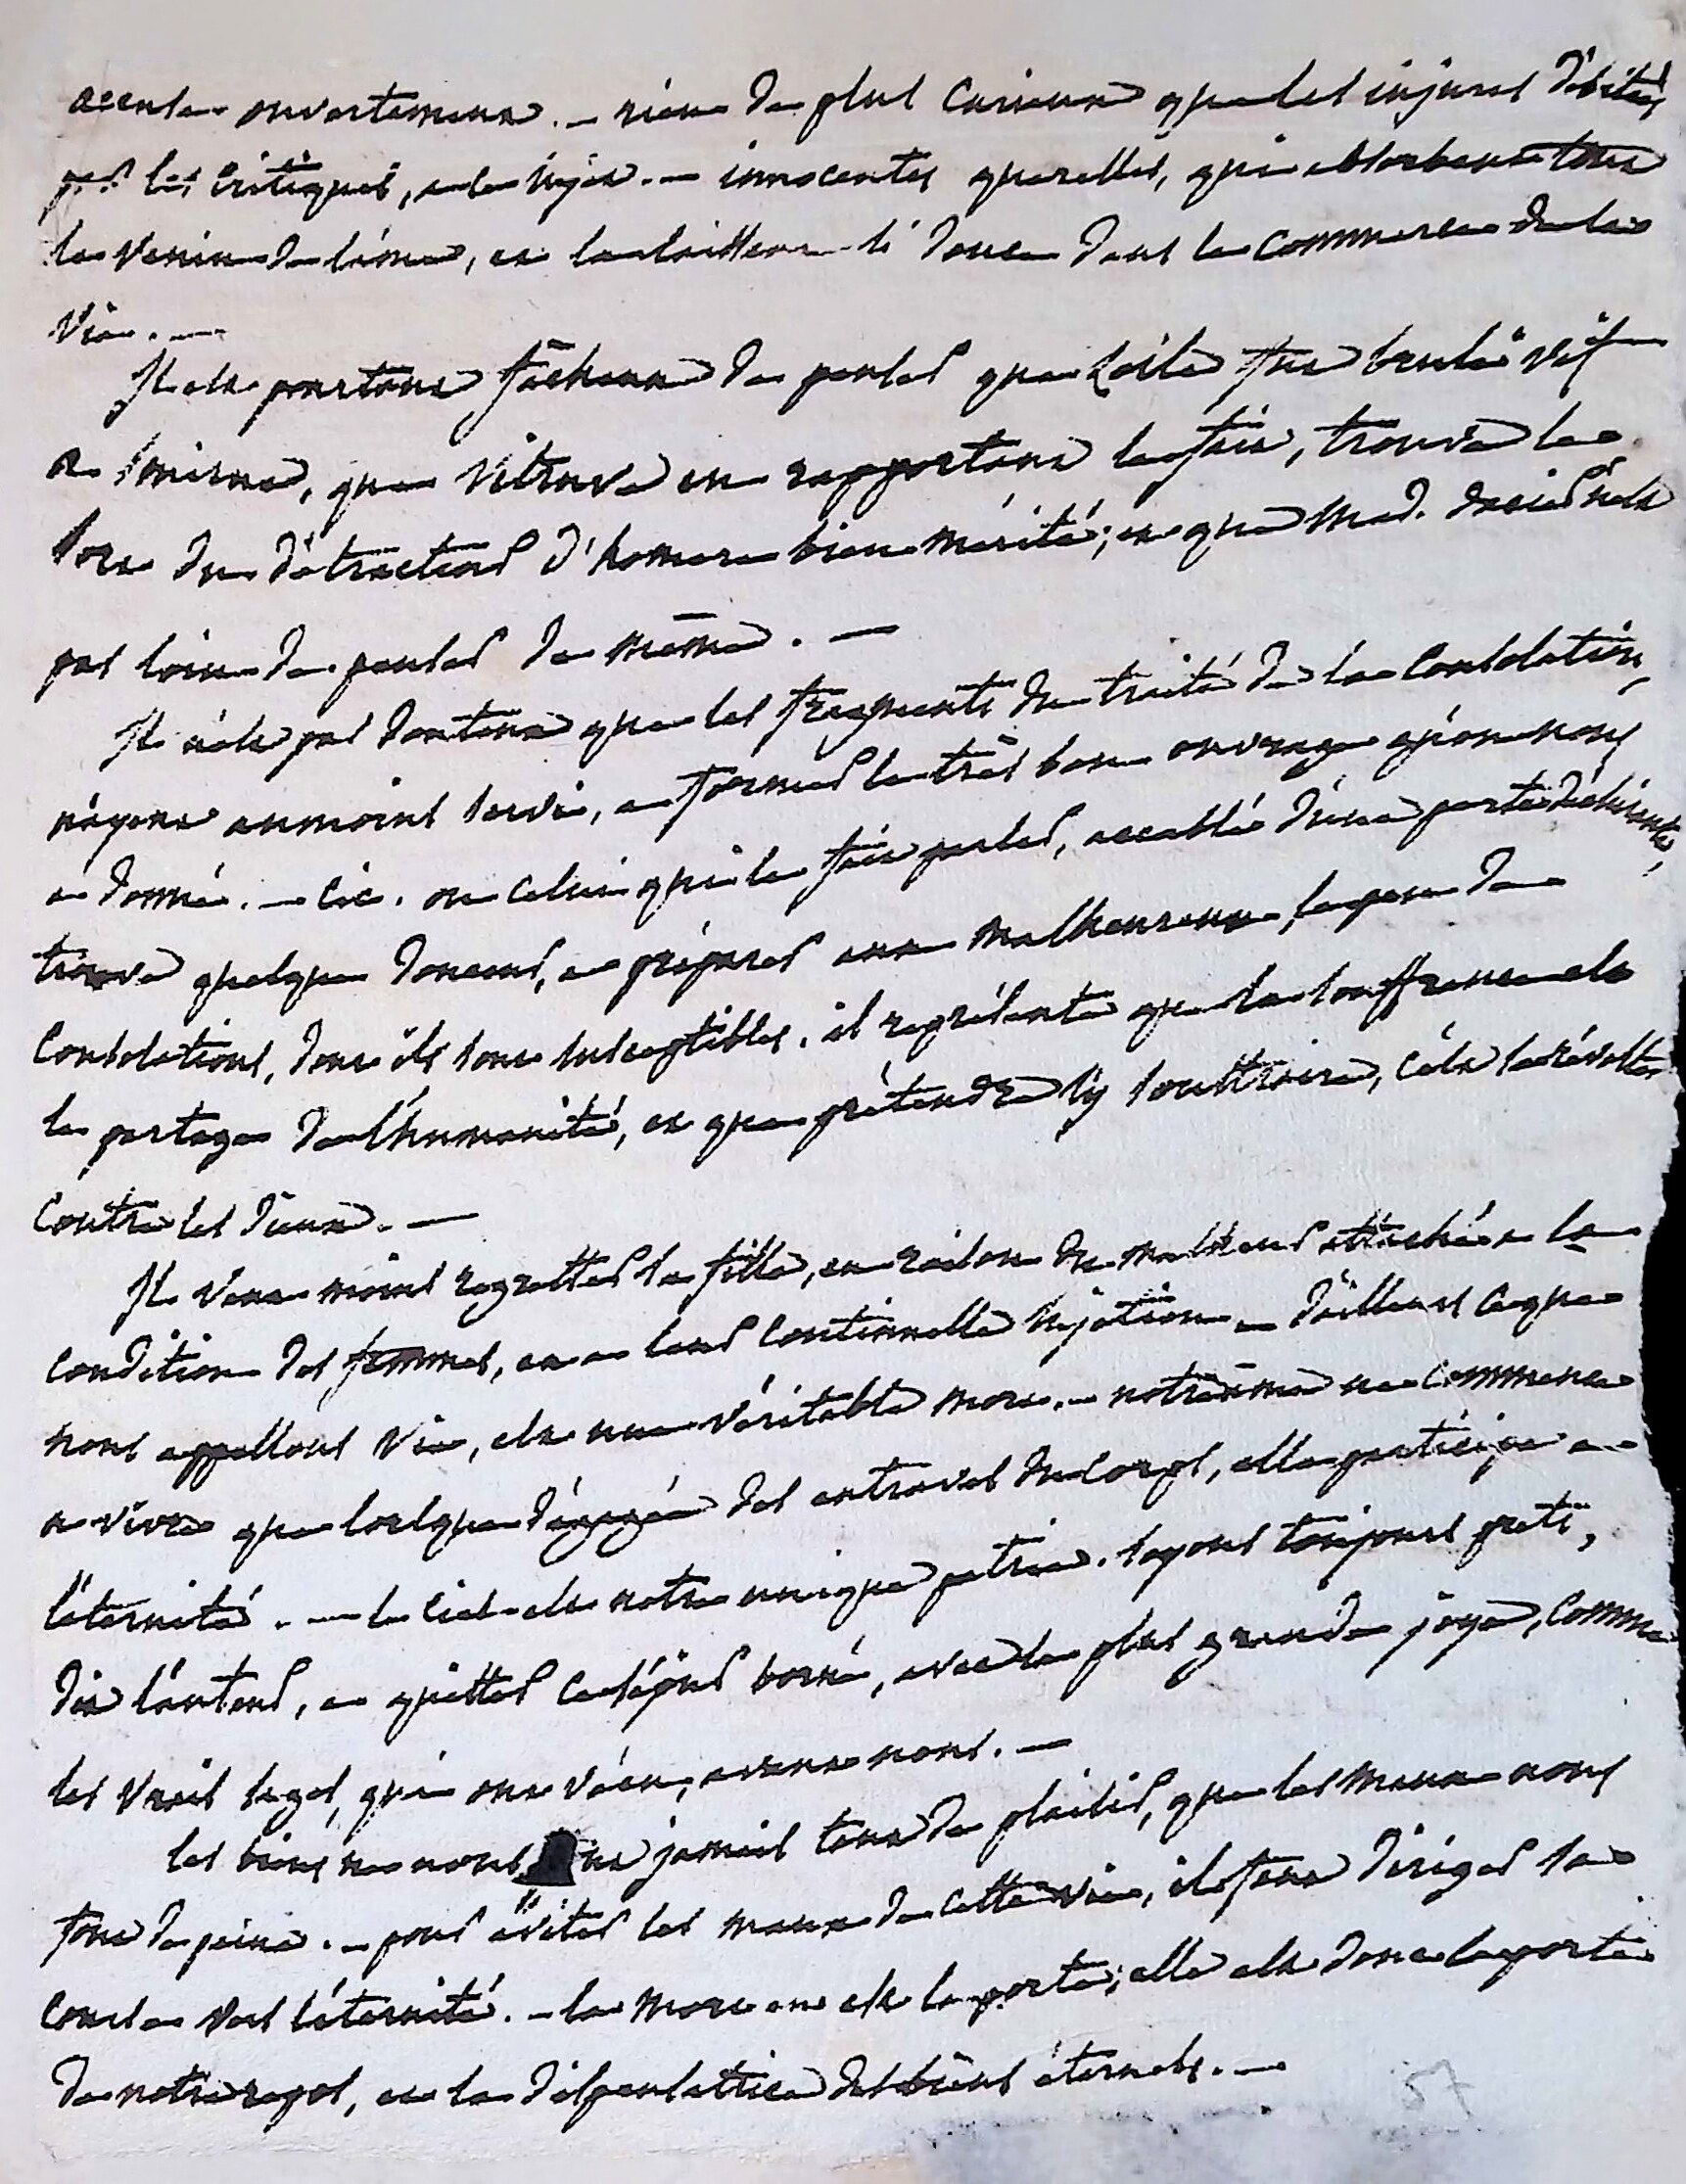 accuse ouvertement. — rien de plus curieux que les injures débitées
par les critiques, a ce sujet. — innocentes querelles, qui absorbent tout
le venin de l'âme, et la laissent si douce dans le commerce de la
vie. —
Il est pourtant fâcheux de penser que Zoïle fut brulé vif
a Smirne, que Vitruve en rapportant le fait, trouve le
sort du détracteur d'homere bien mérité; et que Mad. Dacier n'est
pas loin de penser de même. —
Il n'est pas douteux que les fragments du traité de la Consolation,
n'ayent aumoins servi, a former le très bon ouvrage qu'on nous
a donné. — Cic. ou celui qui le fait parler, accablé d'une perte déchirante,
trouve quelque douceur, a préparer aux malheureux, le peu de
Consolations, dont ils sont susceptibles. il représente que la souffrance est
le partage de l'humanité, et que prétendre s'y soustraire, c'est se révolter
Contre les Dieux. —
Il veut moins regretter sa fille, en raison du malheur attaché a la
condition des femmes, et a leur continuelle sujétion — d'ailleurs ce que
nous appellons vie, est une véritable mort. — notre âme ne commence
a vivre que lorsque dégagée des entraves du corps, elle participe a
l'éternité. — le Ciel est notre unique patrie. soyons toujours prets,
dit l'auteur, a quitter ce séjour borné, avec la plus grande joye, comme
les vrais sages, qui ont vécu, avant nous. —
les biens ne nous font jamais tant de plaisir, que les maux nous
font de peine. — pour éviter les maux de cette vie, il faut diriger sa
course vers l'éternité. — la mort en est la porte; elle est donc la porte
de notre repos, et la dispensatrice des biens éternels. —
57